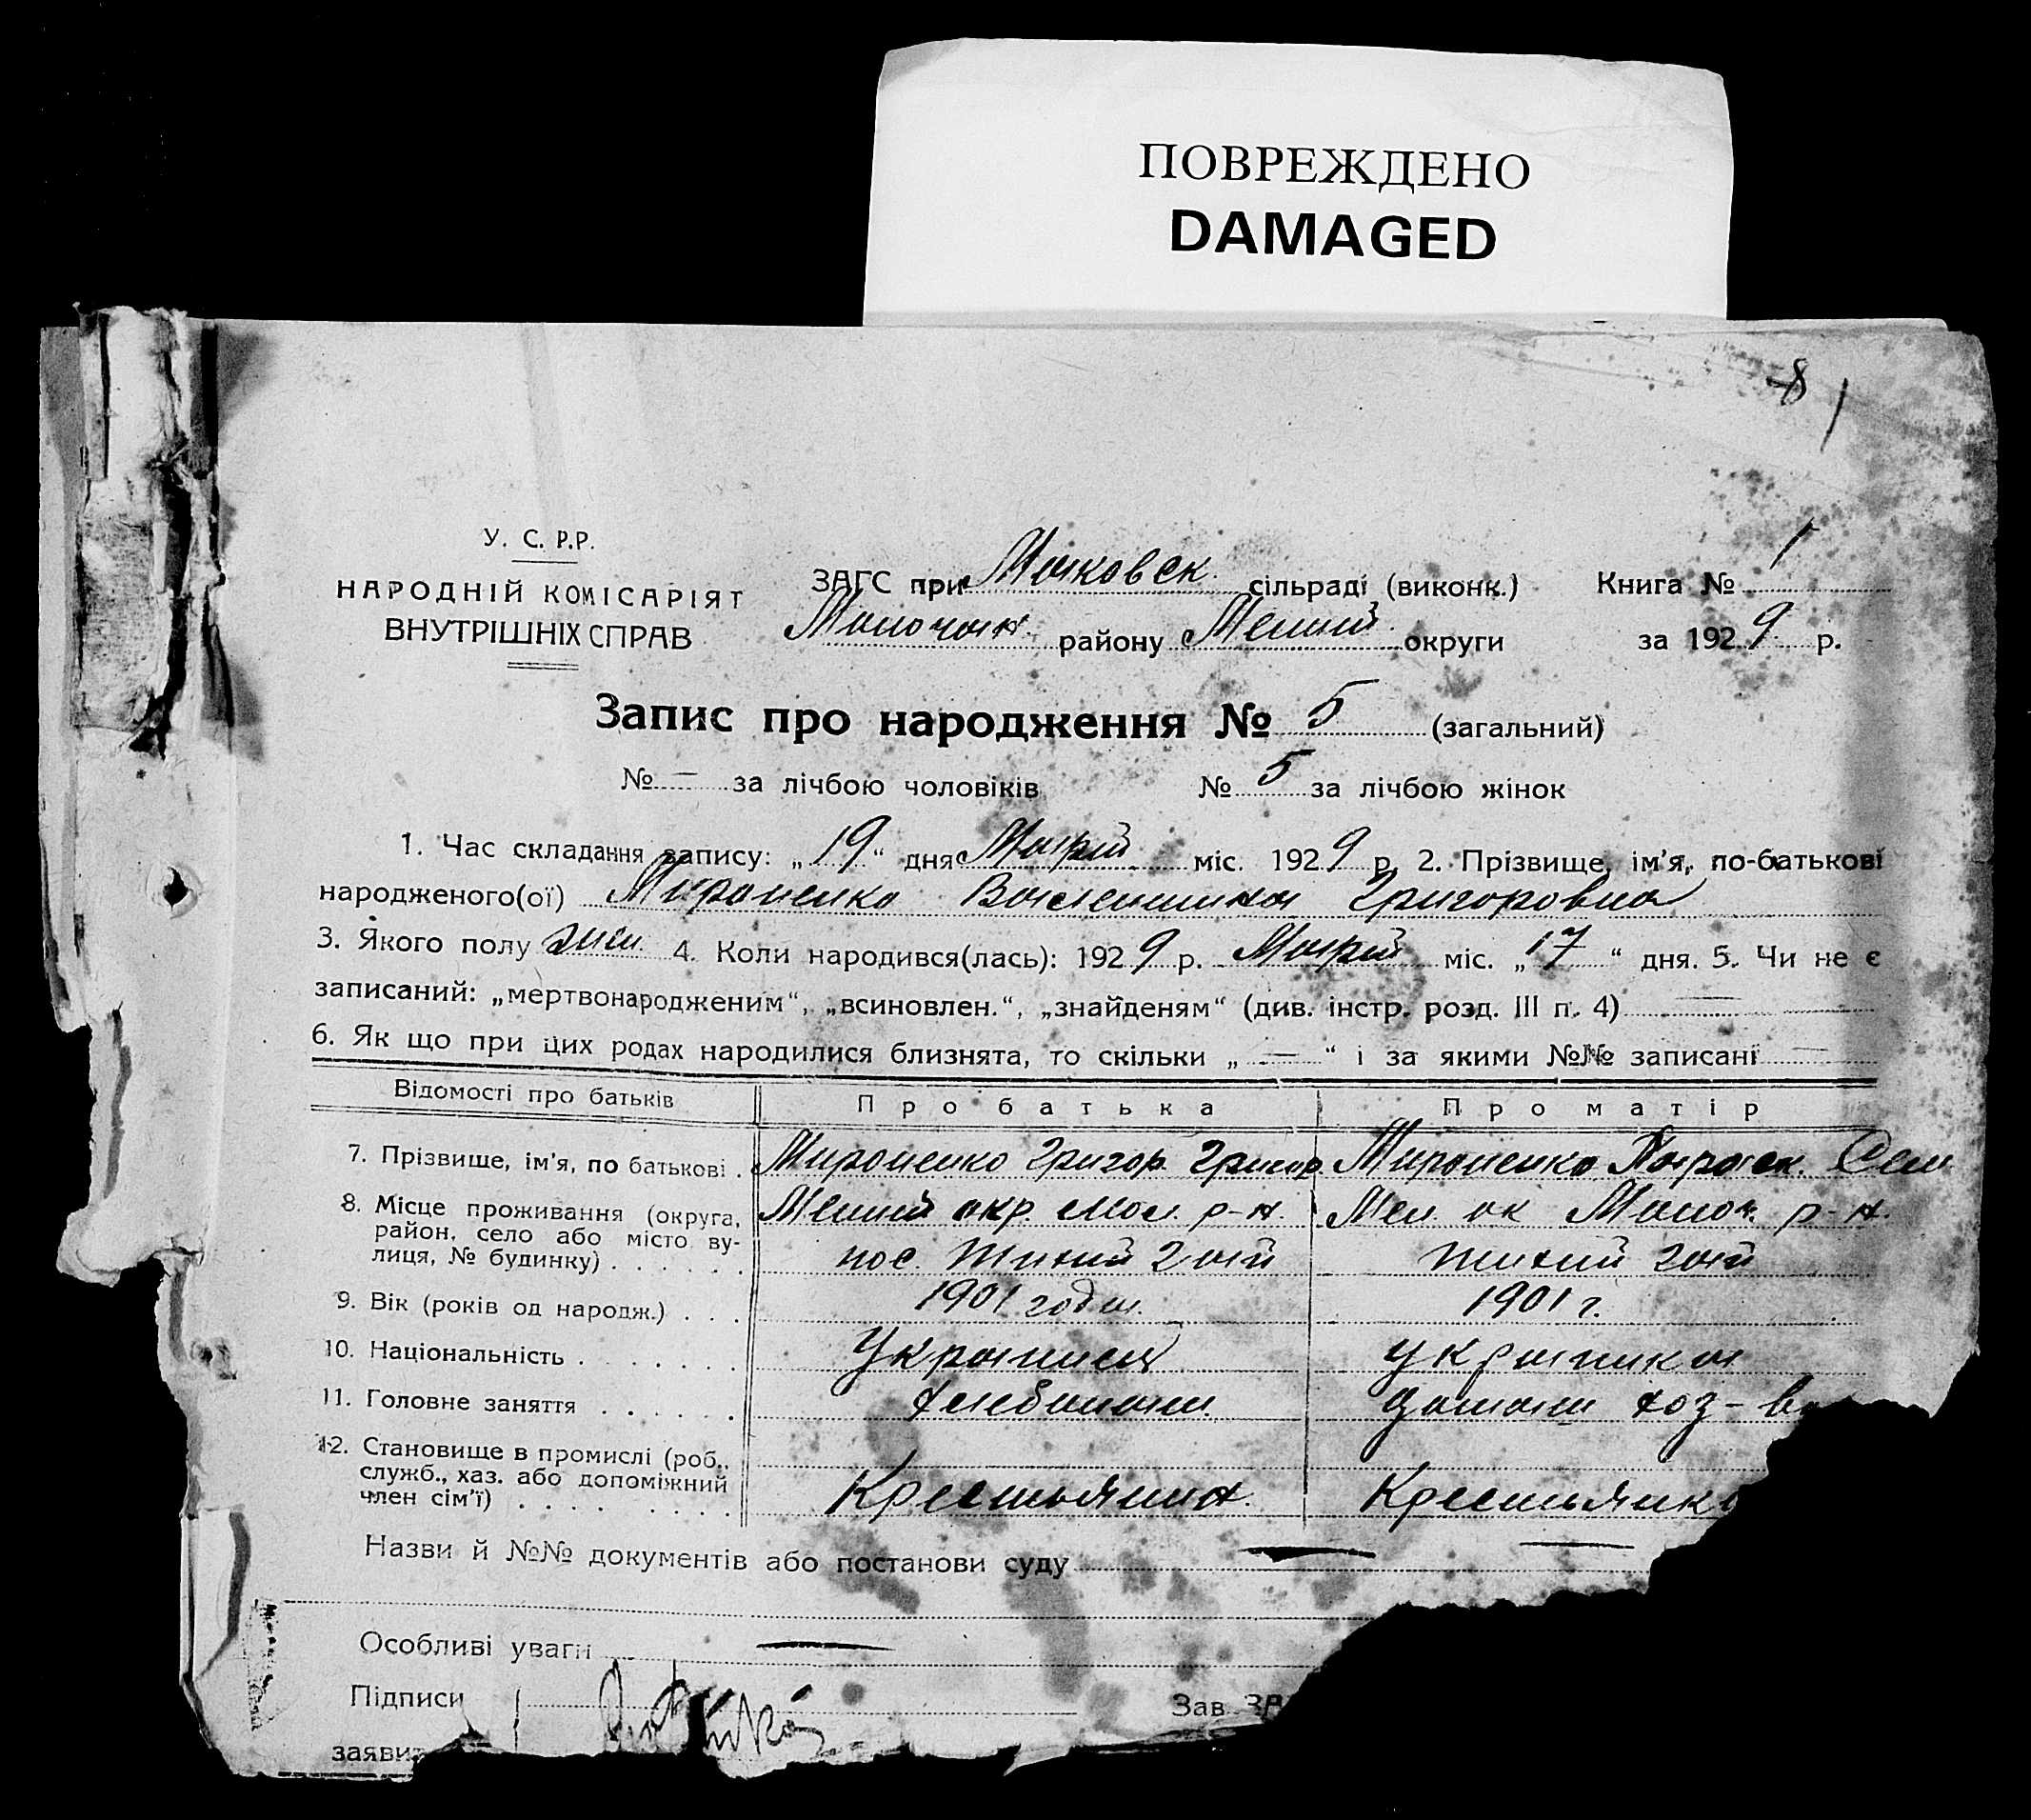 ПОВРЕЖДЕНО
DAMAGED
8
У. С. Р.Р.
НАРОДНІЙ КОМІСАРІЯТ
ВНУТРІШНІХ СПРАВ
ЗАГС при сільраді (виконк.) Книга № 1
району округи за 1929 р.
Запис про народження № 5 (загальний)
№ — за лічбою чоловіків № 5 за лічбою жінок
1. Час складання запису: „ 19 “ дня міс. 1929 р. 2. Прізвище, ім'я, по-батькові
народженого(ої) Мироненко Валентина Григоровна
3. Якого полу жен. 4. Коли народився(лась): 1929 р. міс. „ 17 “ дня. 5. Чи не є
записаний: „мертвонародженим“, „всиновлен.“, „знайденям“ (див. інстр. розд. III п. 4) —
6. Як що при цих родах народилися близнята, то скільки „ — “ і за якими №№ записані —
Відомості про батьків Про батька Про матір
7. Прізвище, ім'я, по батькові . Мироненко Григор. Григор. Мироненко Параск. Сем.
8. Місце проживання (округа, окр. р-н. Мел. ок р-н.
район, село або місто ву-
лиця, № будинку) . . . . . . пос. Тихий Гай Тихий Гай
9. Вік (років од народж.) . . . 1901 года. 1901 г.
10. Національність . . . . . . . Украинец Украинка
11. Головне заняття . . . . . . Хлебопаш. Домаш хоз-в
12. Становище в промислі (роб.,
служб., хаз. або допоміжний
член сім'ї) . . . . . . . . . Крестьянин. Крестьянка
Назви й №№ документів або постанови суду — —
Особливі уваги —
Підписи Зав. ЗА
заяви